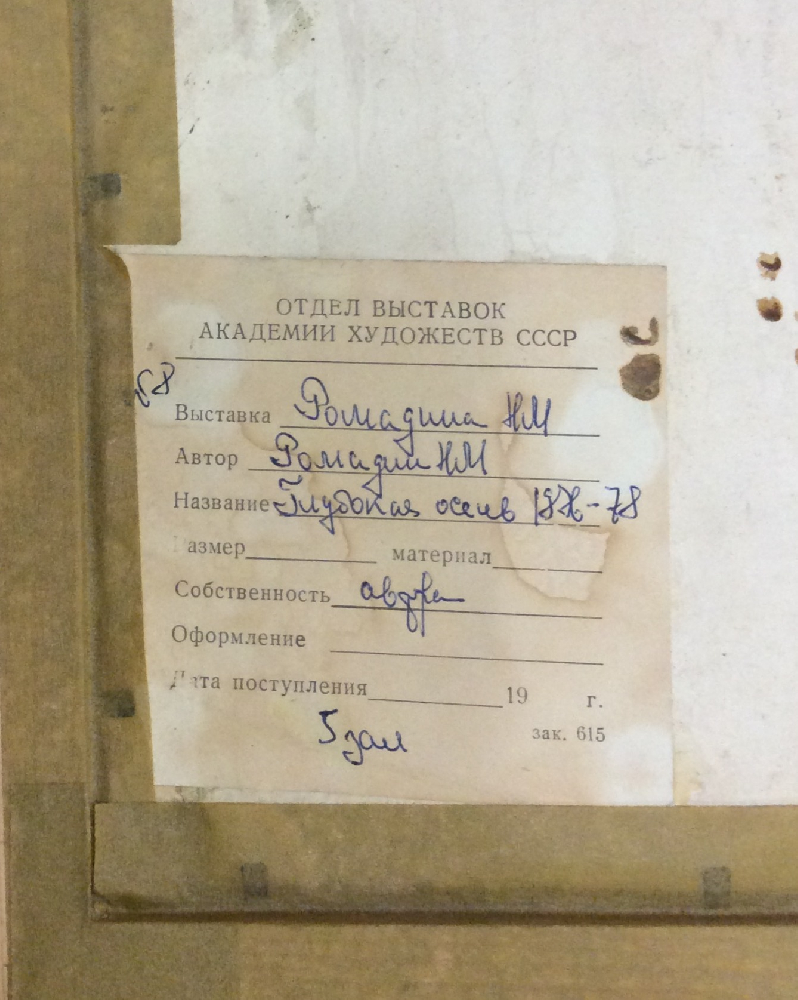 ОТДЕЛ ВЫСТАВОК
АКАДЕМИИ ХУДОЖЕСТВ СССР
68
Выставка Ромадина НМ
Автор Ромадин НМ
Название Глубокая осень 1976-78
азмер материал
Собственность автора
Оформление
Дата поступления 19 г.
зак. 615
5 зал